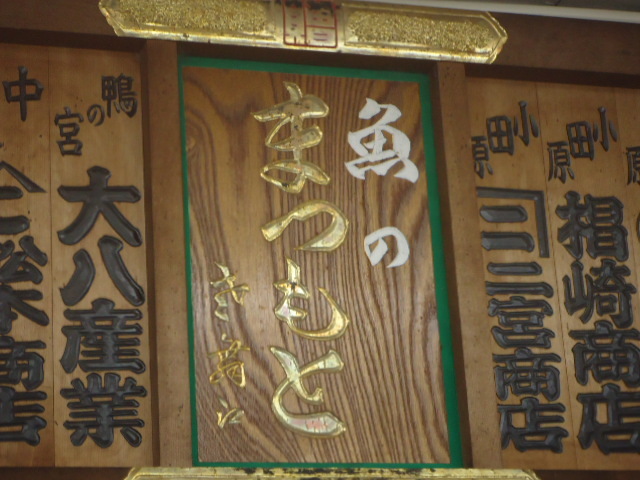 小田原
椙崎商店
小田原
二宮商店
魚の
まつもと
鴨の宮
大八産業
中
松本商店